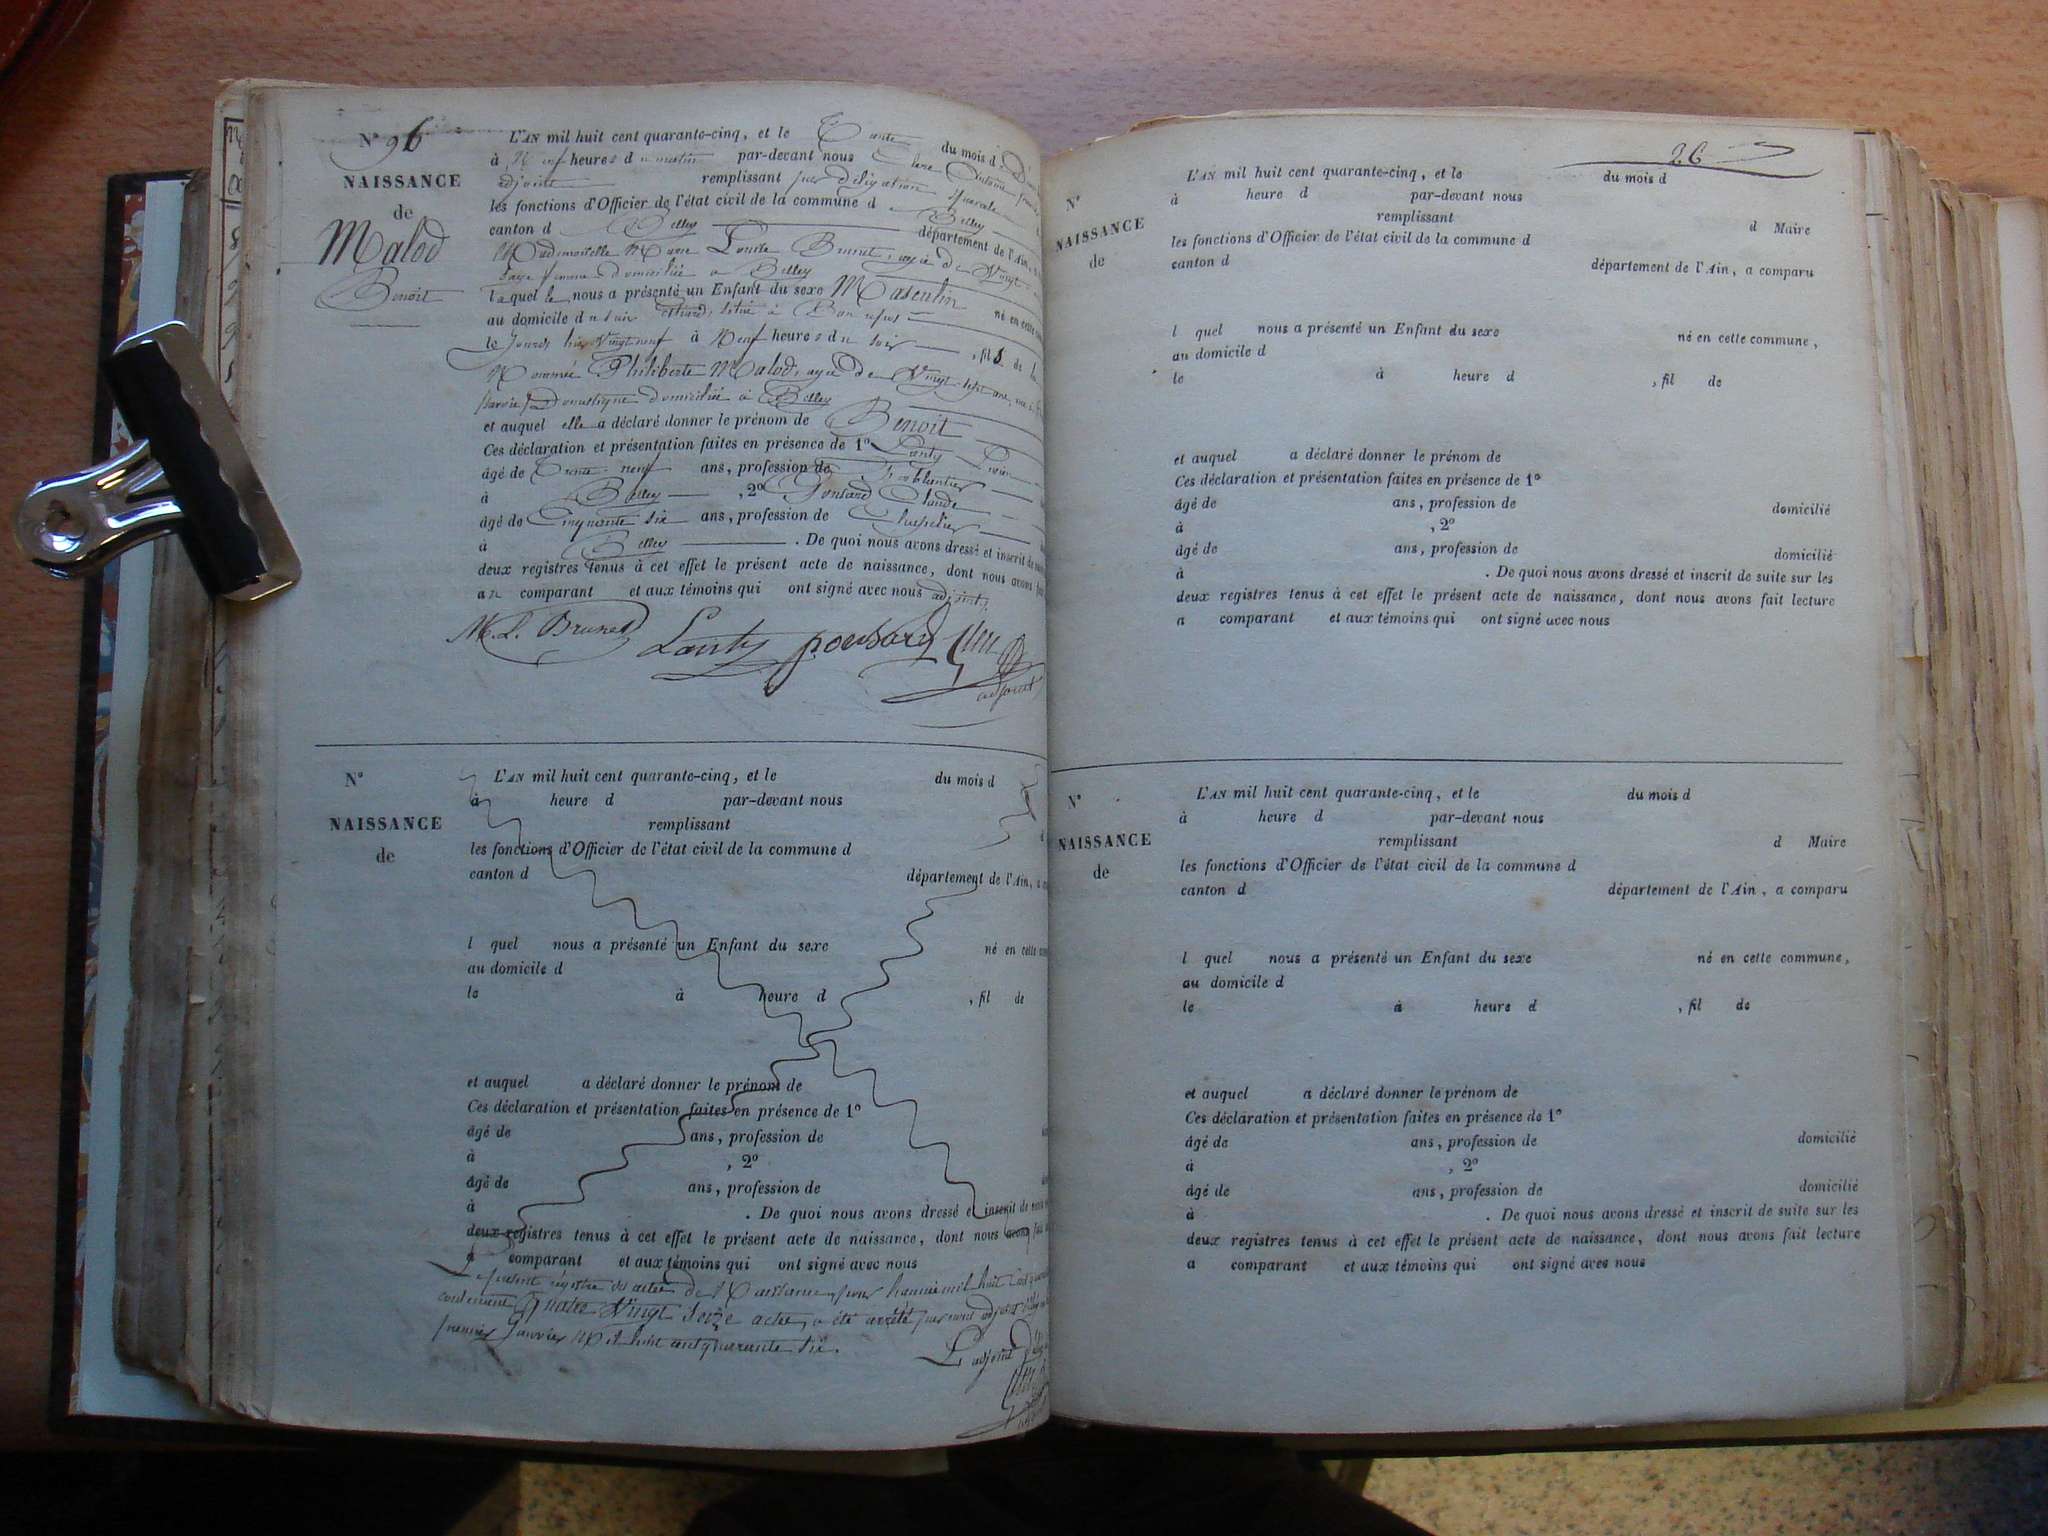 N° 96
NAISSANCE
de
Malod
Benoit
L'AN mil huit cent quarante-cinq, et le Trente du mois d
à Neuf heures du matin par-devant nous Antoine
adjoint remplissant par délégation
les fonctions d'Officier de l'état civil de la commune d Belley
canton d Belley département de l'Ain,
Mademoiselle Marie Louise Brunet, agée de Vingt
Sage femme domiciliée à Belley
laquelle nous a présenté un Enfant du sexe Masculin né en cette
au domicile du situé à Bon repos
le jours hier Vingt neuf à Neuf heures du soir, fils de la
Nommée Philiberte Malod, agée de Vingt sept ans,
Domestique domiciliée à Belley
et auquel elle a déclaré donner le prénom de Benoit
Ces déclaration et présentation faites en présence de 1° Lanty
âgé de Trente-neuf ans, profession de Ferblantier
à Belley, 2° Ponsard Claude
âgé de Cinquante six ans, profession de Chapelier
à Belley. De quoi nous avons dressé et inscrit de
deux registres tenus à cet effet le présent acte de naissance, dont nous avons fait
au comparant et aux témoins qui ont signé avec nous adjoint.
M. L. Brunet Lanty ponsard
adjoint
N°
NAISSANCE
de
L'AN mil huit cent quarante-cinq, et le du mois d
à heure d par-devant nous
remplissant d
les fonctions d'Officier de l'état civil de la commune d
canton d département de l'Ain, a
l quel nous a présenté un Enfant du sexe né en cette
au domicile d
le à heure d , fil de
et auquel a déclaré donner le prénom de
Ces déclaration et présentation faites en présence de 1°
âgé de ans, profession de
à , 2°
âgé de ans, profession de
à . De quoi nous avons dressé et inscrit de
deux registres tenus à cet effet le présent acte de naissance, dont nous avons fait
a comparant et aux témoins qui ont signé avec nous
Le présent régistre des actes de Naissance, pour l'année mil huit Cent
contenant Quatre Vingt Seize actes, a été arrêté par nous adjoint
premier Janvier Mil huit cent quarante six.
L'adjoint
26
N°
NAISSANCE
de
L'AN mil huit cent quarante-cinq, et le du mois d
à heure d par-devant nous
remplissant d Maire
les fonctions d'Officier de l'état civil de la commune d
canton d département de l'Ain, a comparu
l quel nous a présenté un Enfant du sexe né en cette commune,
au domicile d
le à heure d , fil de
et auquel a déclaré donner le prénom de
Ces déclaration et présentation faites en présence de 1°
âgé de ans, profession de domicilié
à , 2°
âgé de ans, profession de domicilié
à . De quoi nous avons dressé et inscrit de suite sur les
deux registres tenus à cet effet le présent acte de naissance, dont nous avons fait lecture
a comparant et aux témoins qui ont signé avec nous
N°
NAISSANCE
de
L'AN mil huit cent quarante-cinq, et le du mois d
à heure d par-devant nous
remplissant d Maire
les fonctions d'Officier de l'état civil de la commune d
canton d département de l'Ain, a comparu
l quel nous a présenté un Enfant du sexe né en cette commune,
au domicile d
le à heure d , fil de
et auquel a déclaré donner le prénom de
Ces déclaration et présentation faites en présence de 1°
âgé de ans, profession de domicilié
à , 2°
âgé de ans, profession de domicilié
à . De quoi nous avons dressé et inscrit de suite sur les
deux registres tenus à cet effet le présent acte de naissance, dont nous avons fait lecture
a comparant et aux témoins qui ont signé avec nous